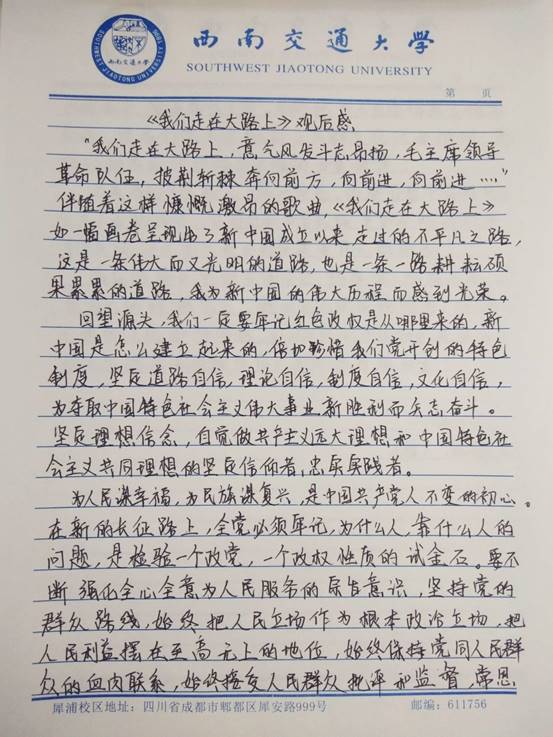 西南交通大学
SOUTHWEST JIAOTONG UNIVERSITY
第 页
《我们走在大路上》观后感
"我们走在大路上，意气风发斗志昂扬，毛主席领导
革命队伍，披荆斩棘奔向前方，向前进，向前进……"
伴随着这样慷慨激昂的歌曲，《我们走在大路上》
如一幅画卷呈现出了新中国成立以来走过的不平凡之路，
这是一条伟大而又光明的道路，也是一条一路耕耘硕
果累累的道路，我为新中国的伟大历程而感到光荣。
回望源头，我们一定要牢记红色政权是从哪里来的，新
中国是怎么建立起来的，倍加珍惜我们党开创的特色
制度，坚定道路自信，理论自信，制度自信，文化自信，
为夺取中国特色社会主义伟大事业新胜利而矢志奋斗。
坚定理想信念，自觉做共产主义远大理想和中国特色社
会主义共同理想的坚定信仰者，忠实实践者。
为人民谋幸福，为民族谋复兴，是中国共产党人不变的初心。
在新的长征路上，全党必须牢记，为什么人，靠什么人的
问题，是检验一个政党，一个政权性质的试金石。要不
断强化全心全意为人民服务的宗旨意识，坚持党的
群众路线，始终把人民立场作为根本政治立场，把
人民利益摆在至高无上的地位，始终保持党同人民群
众的血肉联系，始终接受人民群众批评和监督，常思
犀浦校区地址：四川省成都市郫都区犀安路999号 邮编：611756